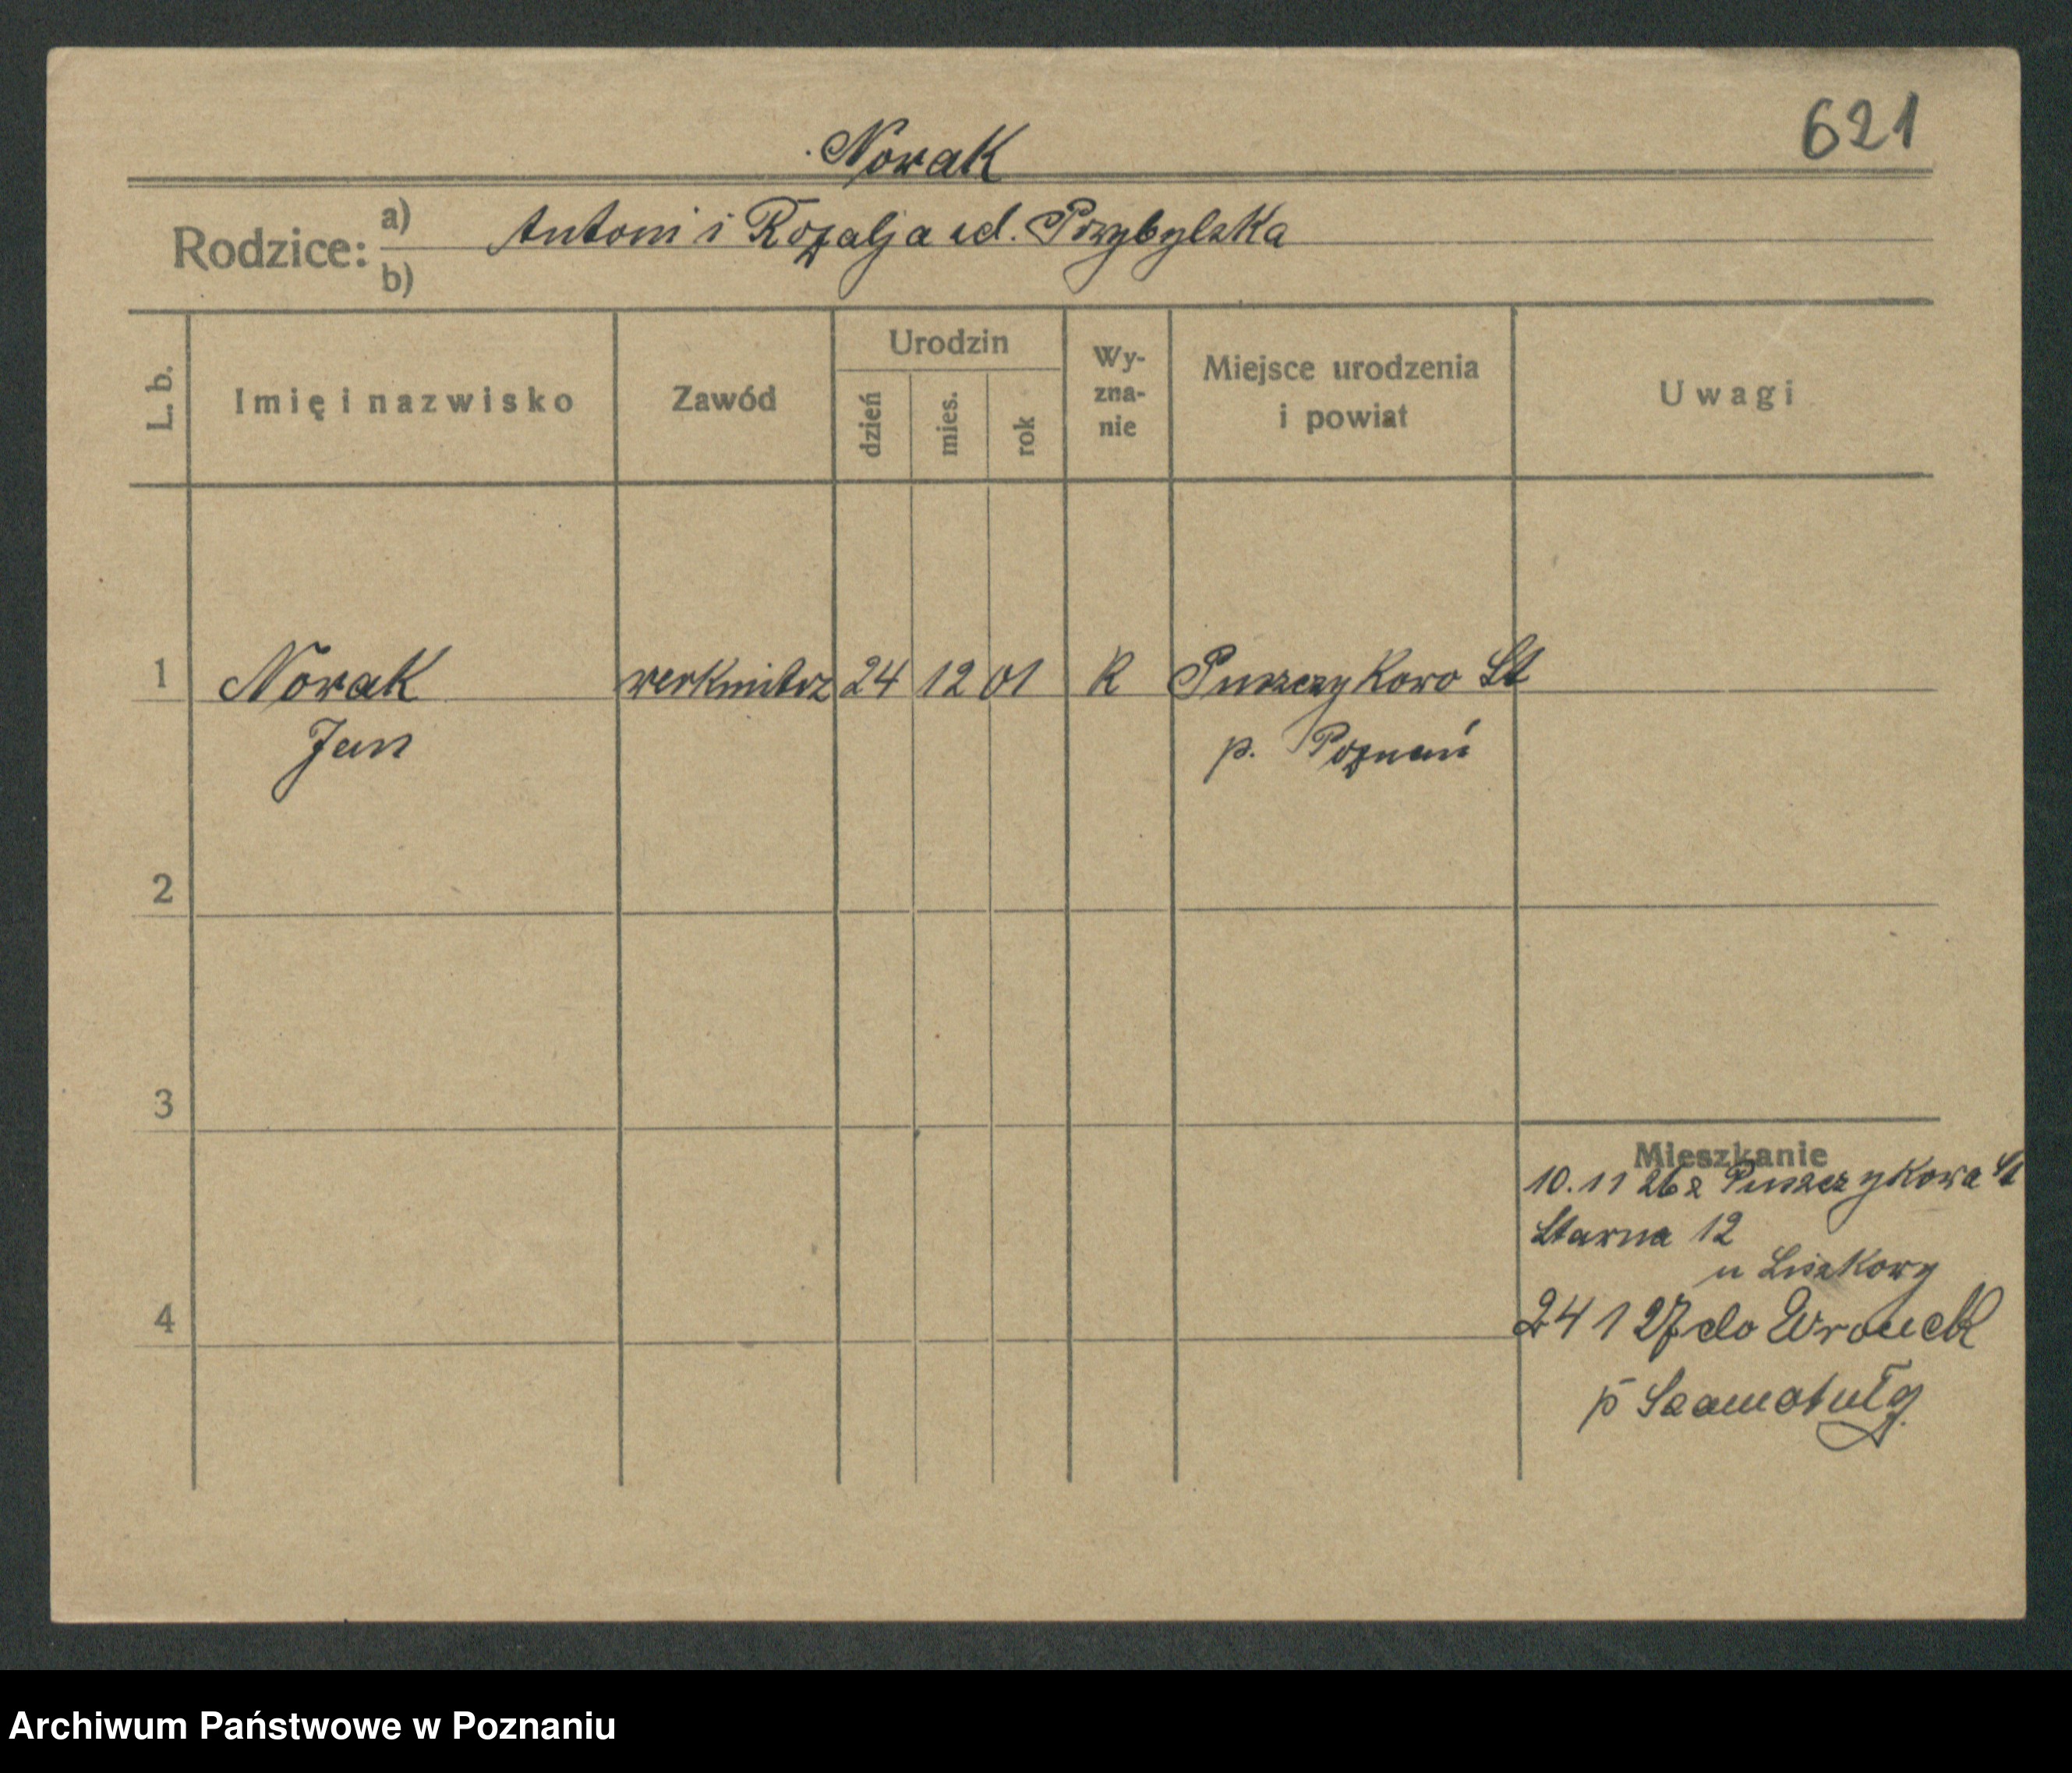 621
Nowak
Rodzice: a) Antoni i Rozalja zd. Przybylska
b)
L. b. Imię i nazwisko Zawód Urodzin dzień mies. rok Wy-zna-nie Miejsce urodzenia i powiat Uwagi
1 Nowak werkmitrz 24 12 01 R Puszczykowo St
Jan p. Poznań
2
3
Mieszkanie
10.11 26 z Puszczykowa St
Starna 12
u Liszkowy
4
24 1 27 do Wronek
p Szamotuły
Archiwum Państwowe w Poznaniu